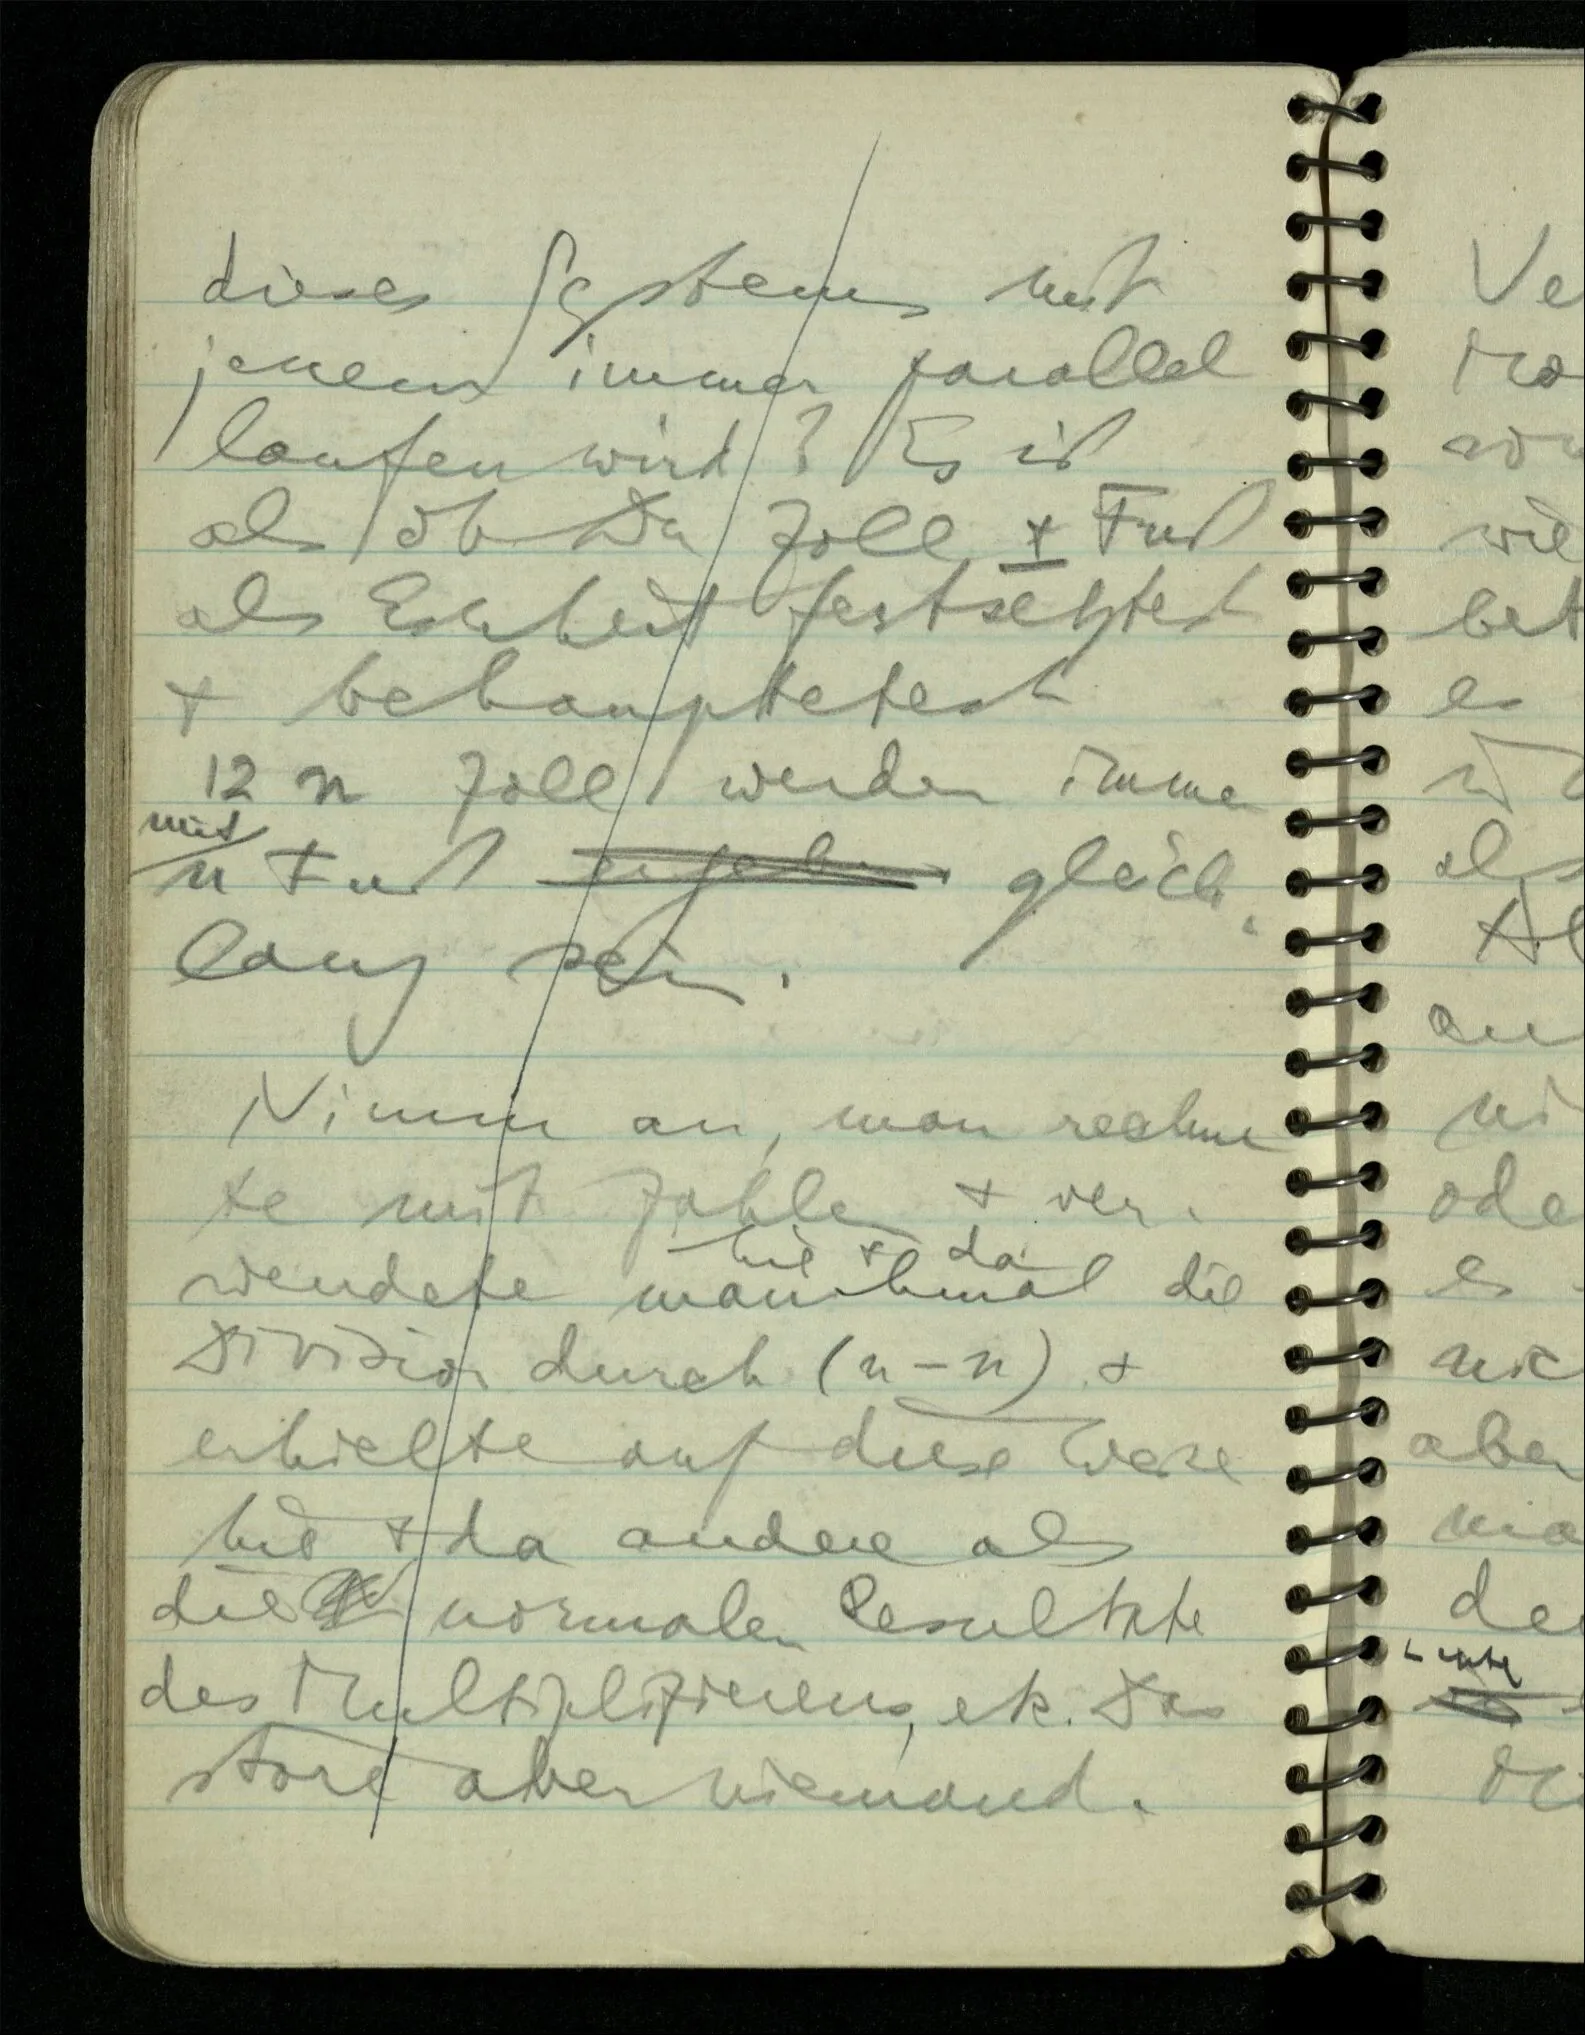 dieses Systems mit
jenem immer parallel
laufen wird? Es ist
als ob Du Zoll + Fuß
als Einheit festsetztest
+ behauptetest
12 n Zoll werden immer
mit
n Fuß ergeben gleich
lang sein.
Nimm an, man rechne
te mit Zahlen + ver-
hie + da
wendete manchmal die
Division durch (n – n) +
erhielte auf diese Weise
hie + da andere als
die normalen Resultate
des Multiplizierens, etc. Das
störe aber niemand.
Ve
wie
bet
es
als
ode
es
nic
aber
ma